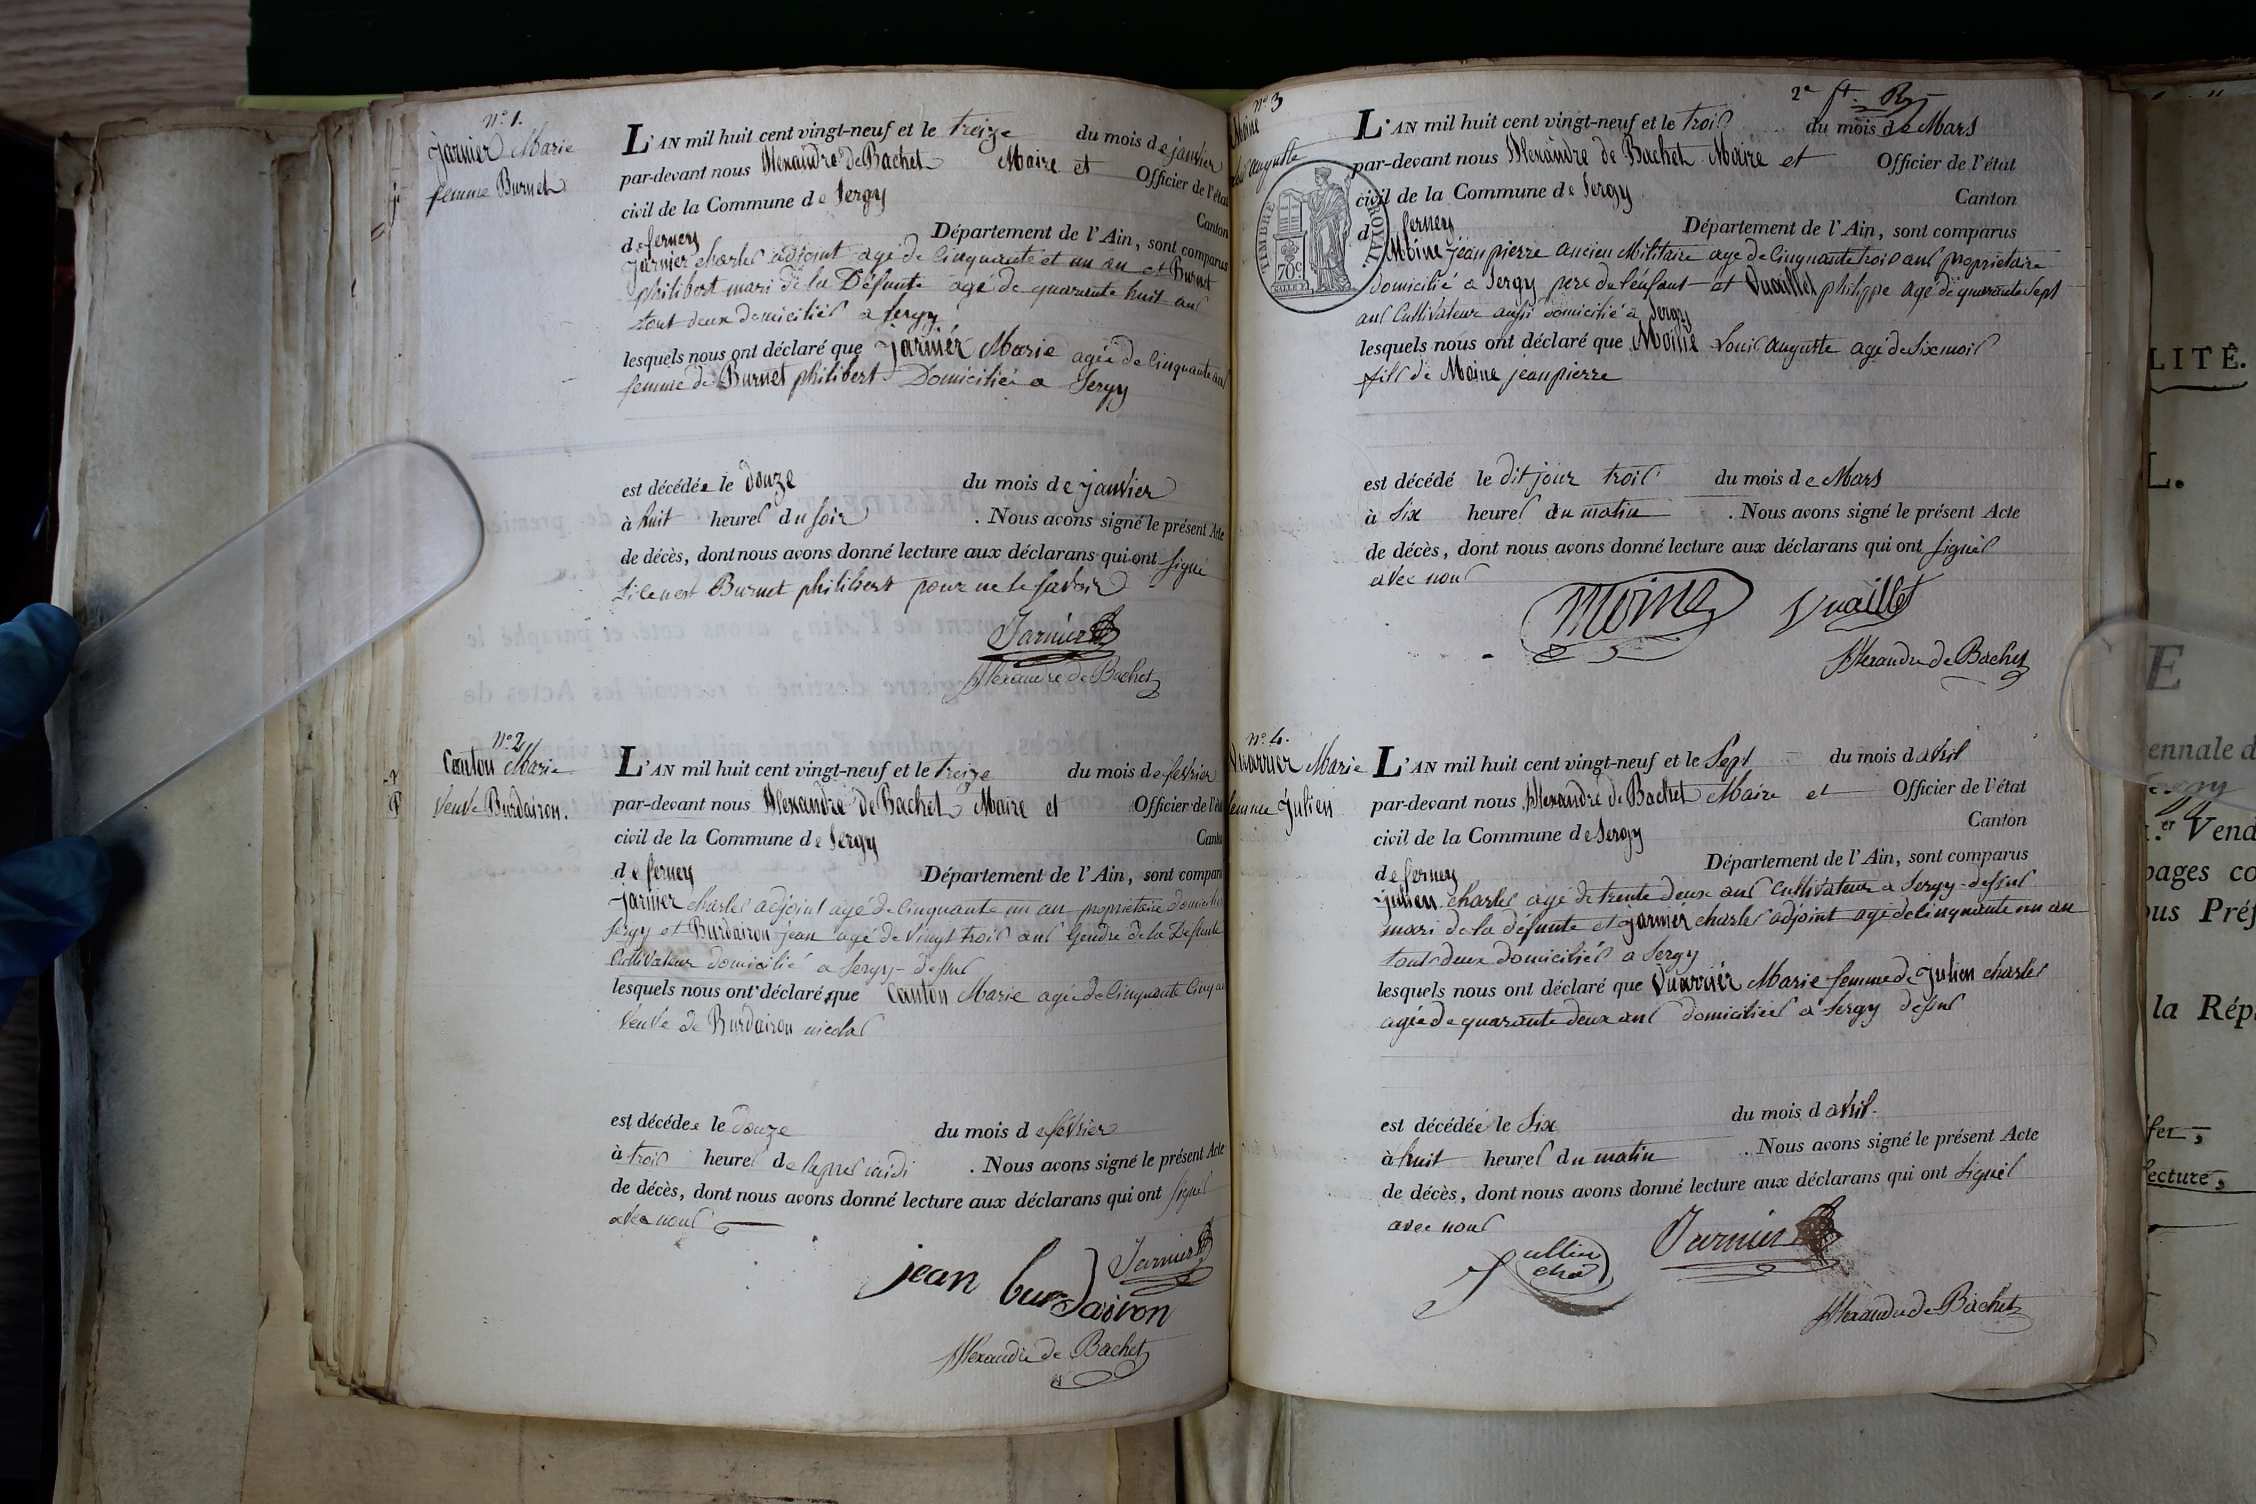 N.° 1.
Jarnier Marie
femme Burnet
L'AN mil huit cent vingt-neuf et le treize du mois de janvier
par-devant nous Alexandre de Bachet Maire et Officier de l'état
civil de la Commune de Sergy Canton
de ferney Département de l'Ain, sont comparus
Jarnier charles adjoint agé de Cinquante et un an et Burnet
philibert mari de la Défunte agé de quarante huit ans
tout deux domiciliés a sergy
lesquels nous ont déclaré que Jarnier Marie agée de Cinquante ans
femme de Burnet philibert Domiciliée a Sergy
est décédée le douze du mois de janvier
à huit heures du soir . Nous avons signé le présent Acte
de décès, dont nous avons donné lecture aux déclarans qui ont signé
si ce n'est Burnet philibert pour ne le savoir
Jarnier
Alexandre de Bachet
N.° 2
Canton Marie
veuve Burdairon.
L'AN mil huit cent vingt-neuf et le treize du mois de fevrier
par-devant nous Alexandre de Bachet Maire et Officier de l'éta
civil de la Commune de Sergy Canto
de ferney Département de l'Ain, sont compar
Jarnier charles adjoint agé de Cinquante un an propriétaire domicilié
Sergy et Burdairon jean agé de Vingt trois ans Gendre de la Defunte
Cultivateur domicilié a Sergy-dessus
lesquels nous ont déclaré que Canton Marie agée de Cinquante Cinq an
veuve de Burdairon nicolas
est décédée le douze du mois de février
à trois heures de lapres midi . Nous avons signé le présent Acte
de décès, dont nous avons donné lecture aux déclarans qui ont signés
avec nous
Jarnier
jean burdairon
Alexandre de Bachet
2e ft. R
N.° 3
Moine
Louis auguste
TIMBRE ROYAL.
70c
L'AN mil huit cent vingt-neuf et le trois du mois de Mars
par-devant nous Alexandre de Bachet Maire et Officier de l'état
civil de la Commune de Sergy Canton
d ferney Département de l'Ain, sont comparus
Moine jean pierre ancien Militaire age de Cinquante trois ans propriétaire
domicilié a Sergy pere de l'enfant et Vuaillet philippe agé de quarante sept
ans Cultivateur aussi domicilié a Sergy
lesquels nous ont déclaré que Moine Louis auguste agé de six mois
fils de Moine jean pierre
est décédé le dit jour trois du mois de Mars
à six heures du matin . Nous avons signé le présent Acte
de décès, dont nous avons donné lecture aux déclarans qui ont signés
avec nous
Moine Vuaillet
Alexandre de Bachet
N.° 4.
Vuarrier Marie
femme Julien
L'AN mil huit cent vingt-neuf et le Sept du mois d avril
par-devant nous Alexandre de Bachet Maire et Officier de l'état
civil de la Commune de Sergy Canton
de ferney Département de l'Ain, sont comparus
julien charles agé de trente deux ans Cultivateur a Sergy-dessus
mari de la défunte et jarnier charles adjoint agé de cinquante un an
tout deux domiciliés a Sergy
lesquels nous ont déclaré que Vuarrier Marie femme de Julien charles
agée de quarante deux ans domiciliée a Sergy dessus
est décédée le Six du mois d avril.
à huit heures du matin . Nous avons signé le présent Acte
de décès, dont nous avons donné lecture aux déclarans qui ont signés
avec nous
Jullien cha Jarnier
Alexandre de Bachet
LITÉ.
L.
E
ennale d
Vend
pages co
ous Préf
la Rép
fer,
ecture,